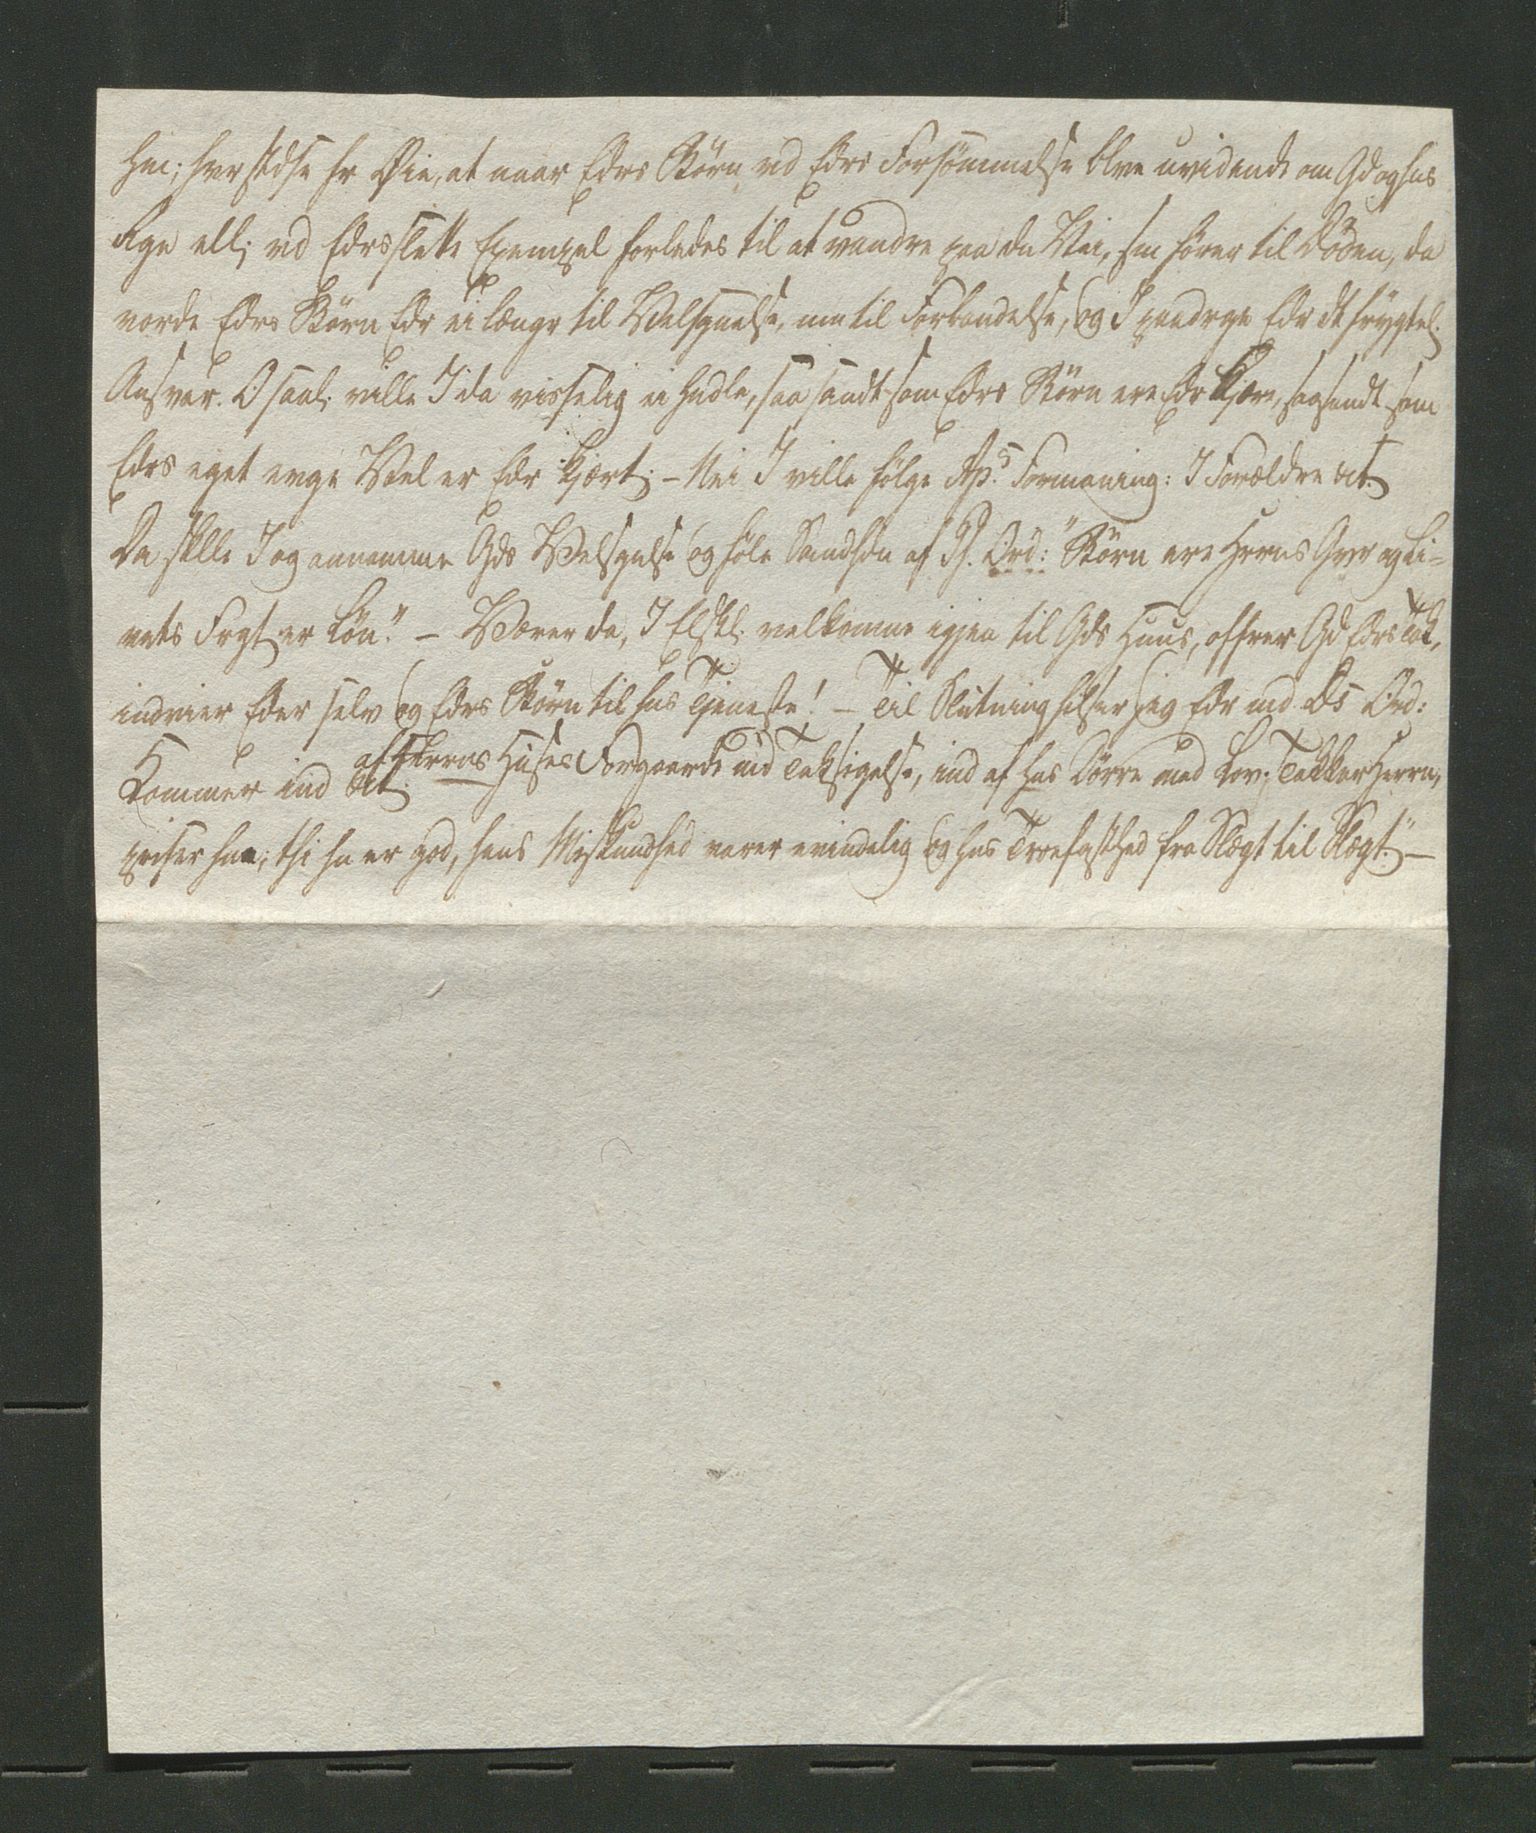 Hm; hver stdse fr Øie, at naar Edrs Børn vd Edrs Forsømmelse blve uvidende om Gd og hns
Rge ell; vd Edrs slette Exempel forledes til at vandre paa dn Vei, sm fører til Døden, da
vorde Edrs Børn Edr ei længr til Velsgnelse, mn til Forbandelse, og I paadrge Edr dt frygtel.
Ansvar. O saal. ville I da visselig ei hndle, saa sandt som Edrs Børn ere Edr kjære, saasandt som
Edrs eget evige Vel er Edr kjært; – Nei I ville følge Ap.s Formaning: I Forældre &ct.
Da sklle I og annamme Gds Velsgnelse og føle Sandhdn af Ps. Ord: "Børn ere Hrrns Gver og Li-
vets Frgt er Løn". – Værer da, I Elskl. velkomne igjen til Gds Huus, offrer Gd Edrs Tak,
indvier Eder selv og Edrs Børn til hns Tjeneste! – Til Slutning hilser jeg Edr md Ds Ord:
Kommer ind &ct. af Hrrns Huses Forgaarde md Taksigelse, ind af hns Dørre med Lov; Takker Herrn,
priser hnn; thi hn er god, hans Miskundhed varer evindelig og hns Troefasthed fra Slægt til Slægt." –